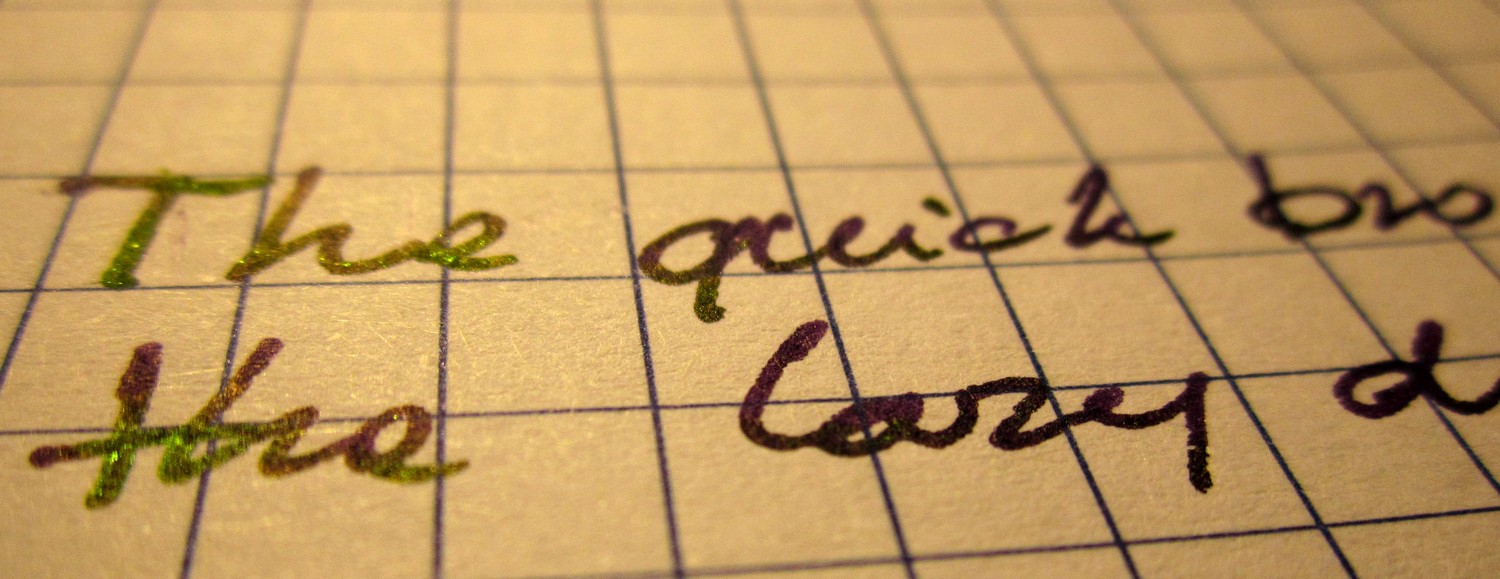 The quick bro
the lazy d